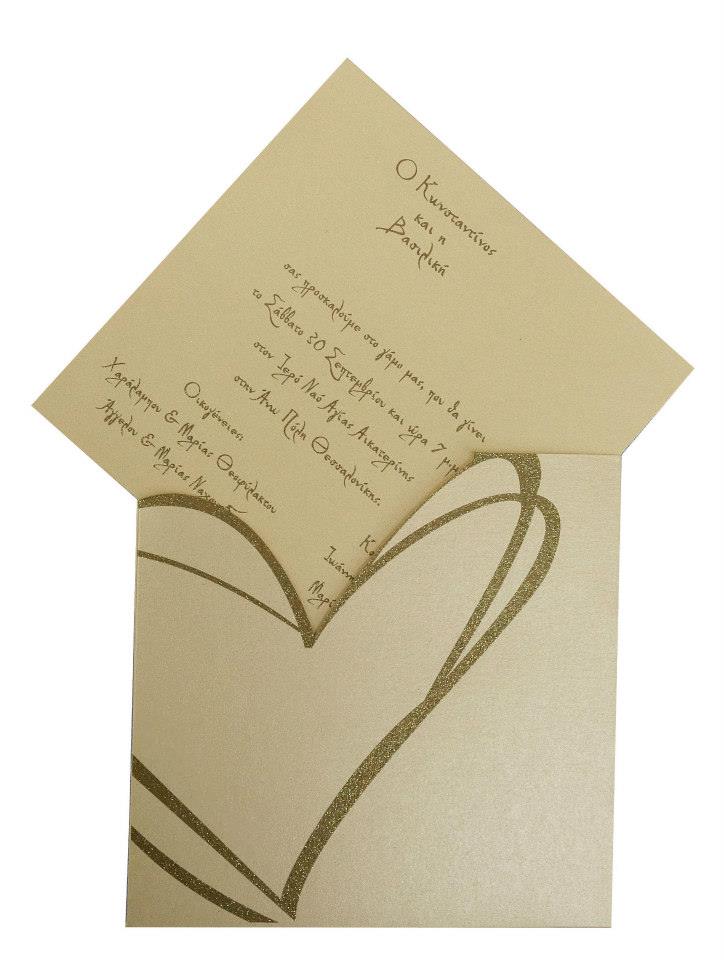 Ο Κωνσταντίνος
και η
Βασιλική
σας προσκαλούμε στο γάμο μας, που θα γίνει
το Σάββατο 30 Σεπτεμβρίου και ώρα 7 μ.μ.
στον Ιερό Ναό Αγίας Αικατερίνης
στην Άνω Πόλη Θεσσαλονίκης.
Οικογένειες:
Χαράλαμπου & Μαρίας Θεοφίλακτου
Άγγελου & Μαρίας